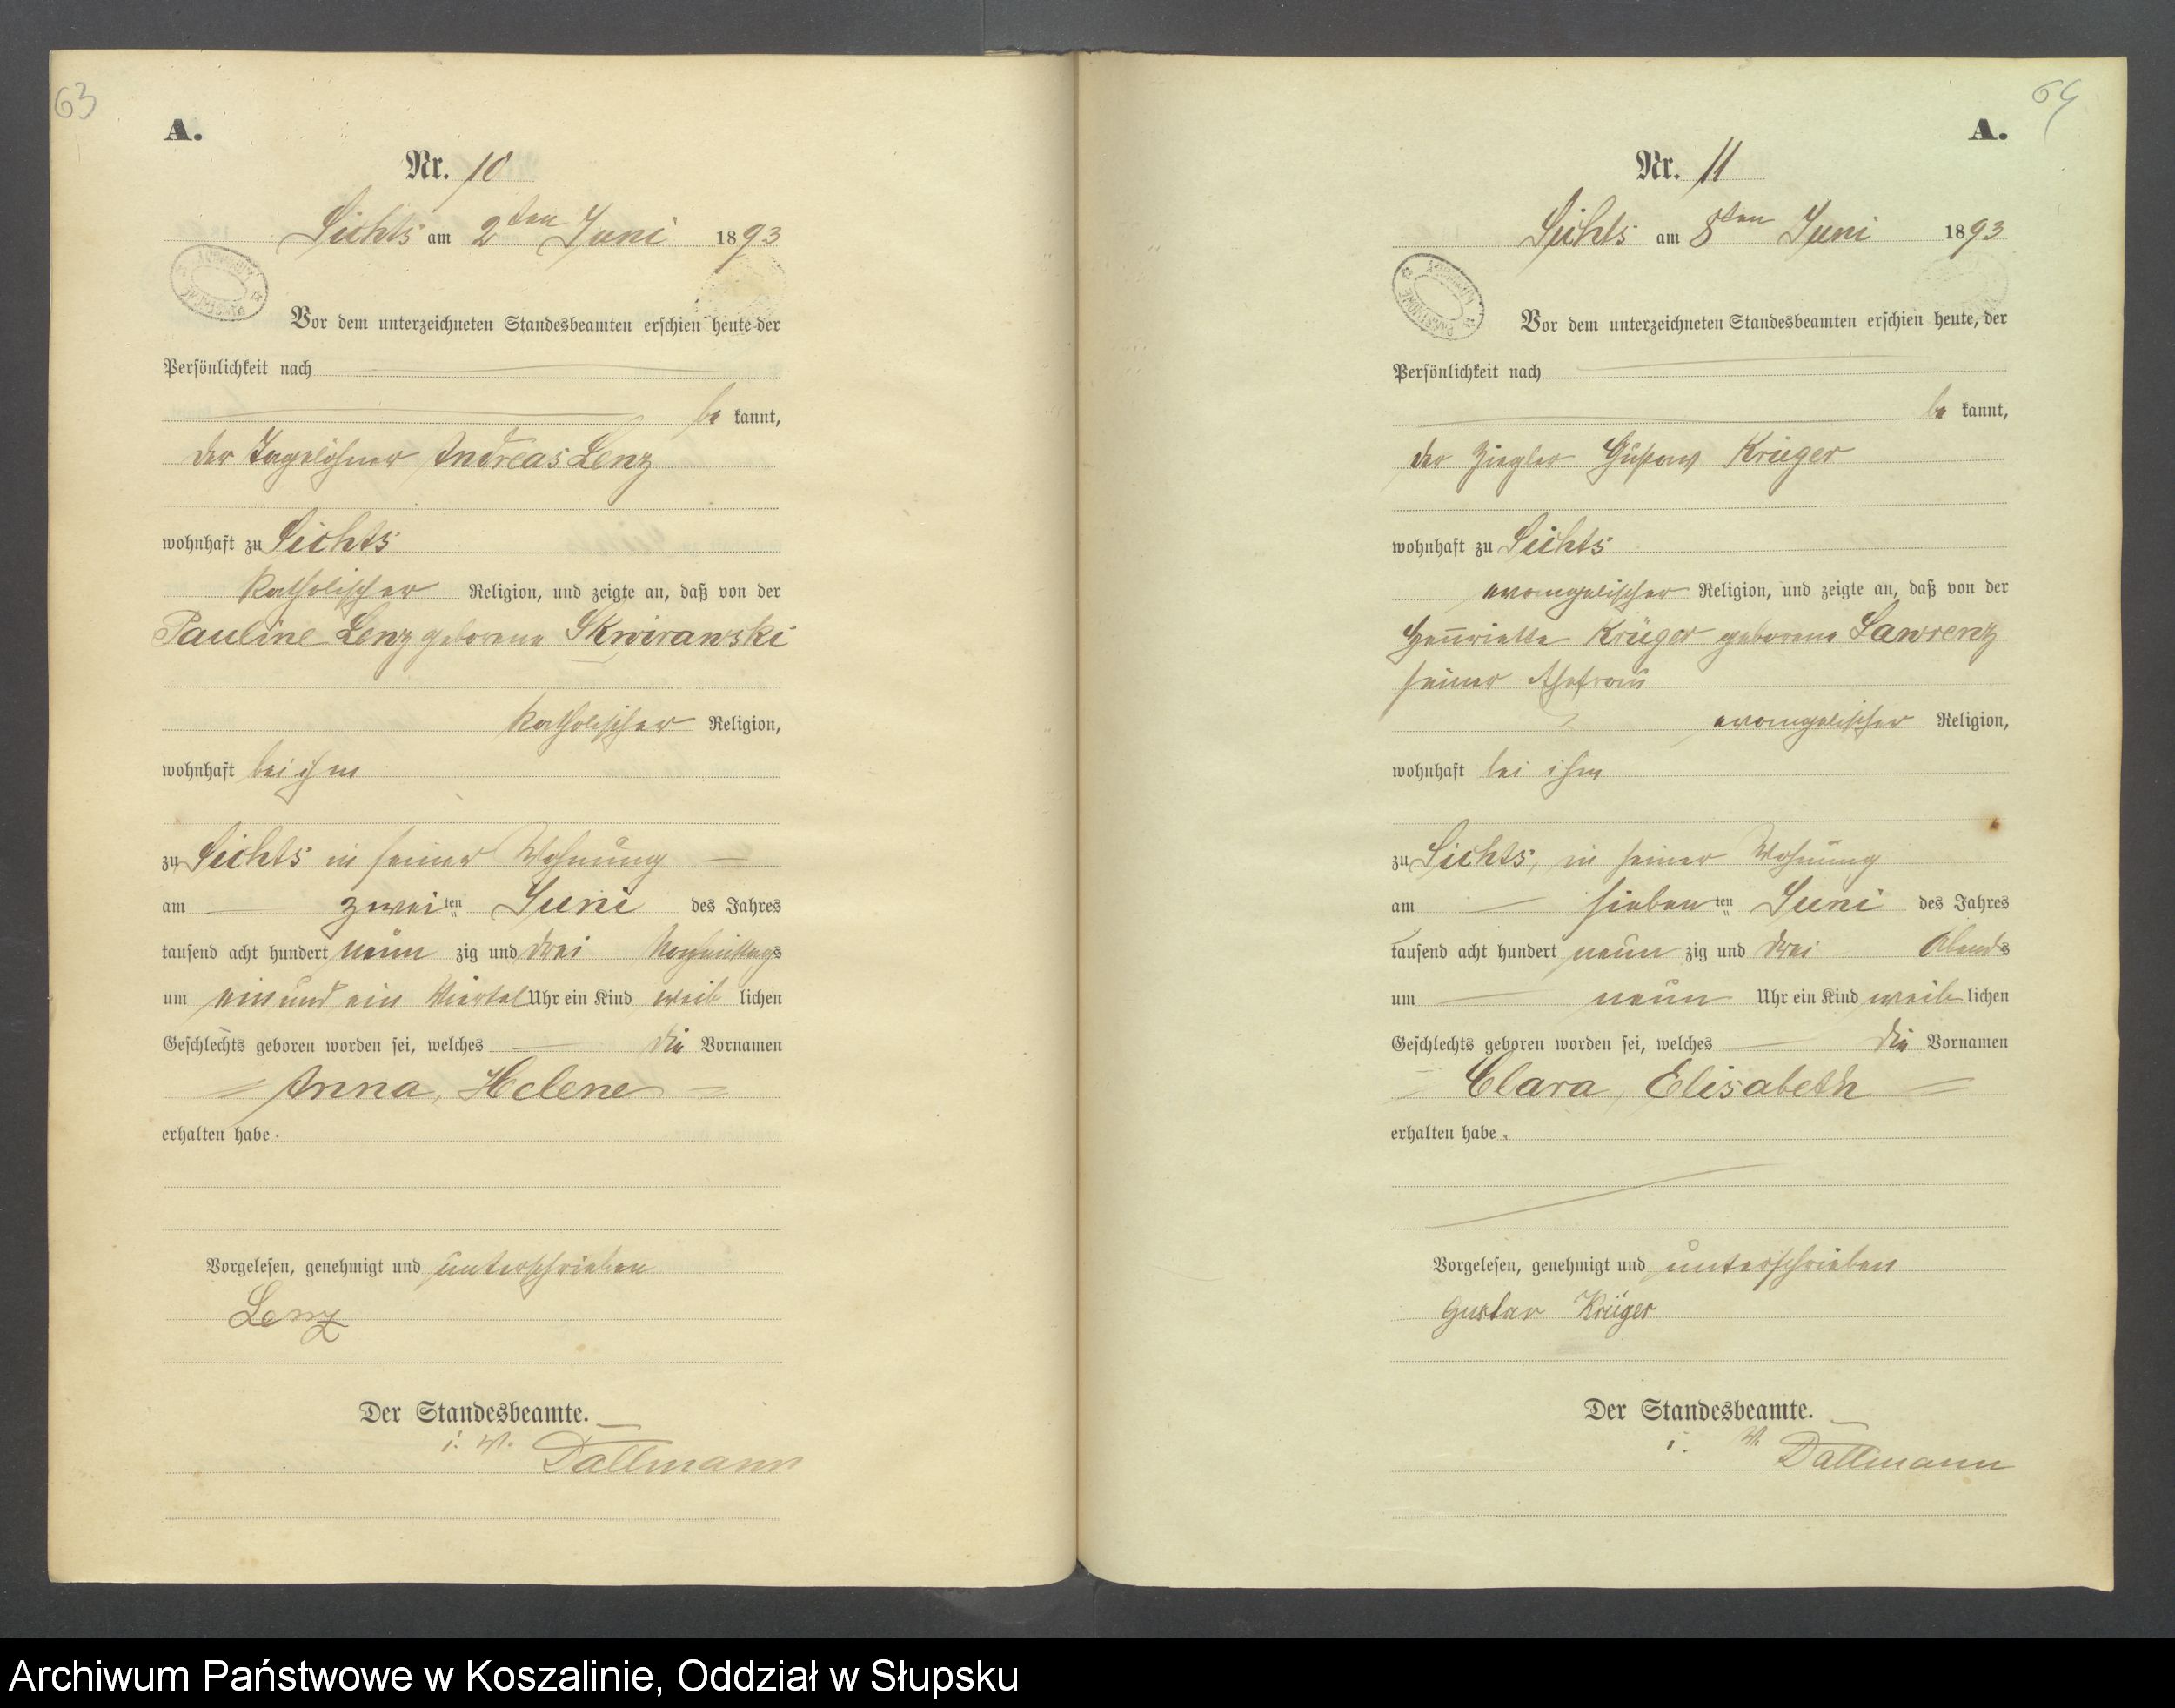 63
A.
Nr. 10
Sichts am 2ten Juni 1893
Vor dem unterzeichneten Standesbeamten erschien heute, der
Persönlichkeit nach
be kannt,
der Tagelöhner Andreas Lenz
wohnhaft zu Sichts
katholischer Religion, und zeigte an, daß von der
Pauline Lenz geborene Skwiranski
katholischer Religion,
wohnhaft bei ihm
zu Sichts in seiner Wohnung
am zweiten Juni des Jahres
tausend acht hundert neun zig und drei Nachmittags
um ein und ein Viertel Uhr ein Kind weib lichen
Geschlechts geboren worden sei, welches die Vornamen
Anna, Helene
erhalten habe.
Vorgelesen, genehmigt und unterschrieben
Lenz
Der Standesbeamte.
i. V. Dallmann
64
A.
Nr. 11
Sichts am 8ten Juni 1893
Vor dem unterzeichneten Standesbeamten erschien heute, der
Persönlichkeit nach
be kannt,
der Ziegler Gustav Krüger
wohnhaft zu Sichts
evangelischer Religion, und zeigte an, daß von der
Henriette Krüger geborene Lawrenz
seiner Ehefrau
evangelischer Religion,
wohnhaft bei ihm
zu Sichts, in seiner Wohnung
am siebenten Juni des Jahres
tausend acht hundert neun zig und drei Abends
um neun Uhr ein Kind weib lichen
Geschlechts geboren worden sei, welches die Vornamen
Clara, Elisabeth
erhalten habe.
Vorgelesen, genehmigt und unterschrieben
Gustav Krüger
Der Standesbeamte.
i. V. Dallmann
Archiwum Państwowe w Koszalinie, Oddział w Słupsku